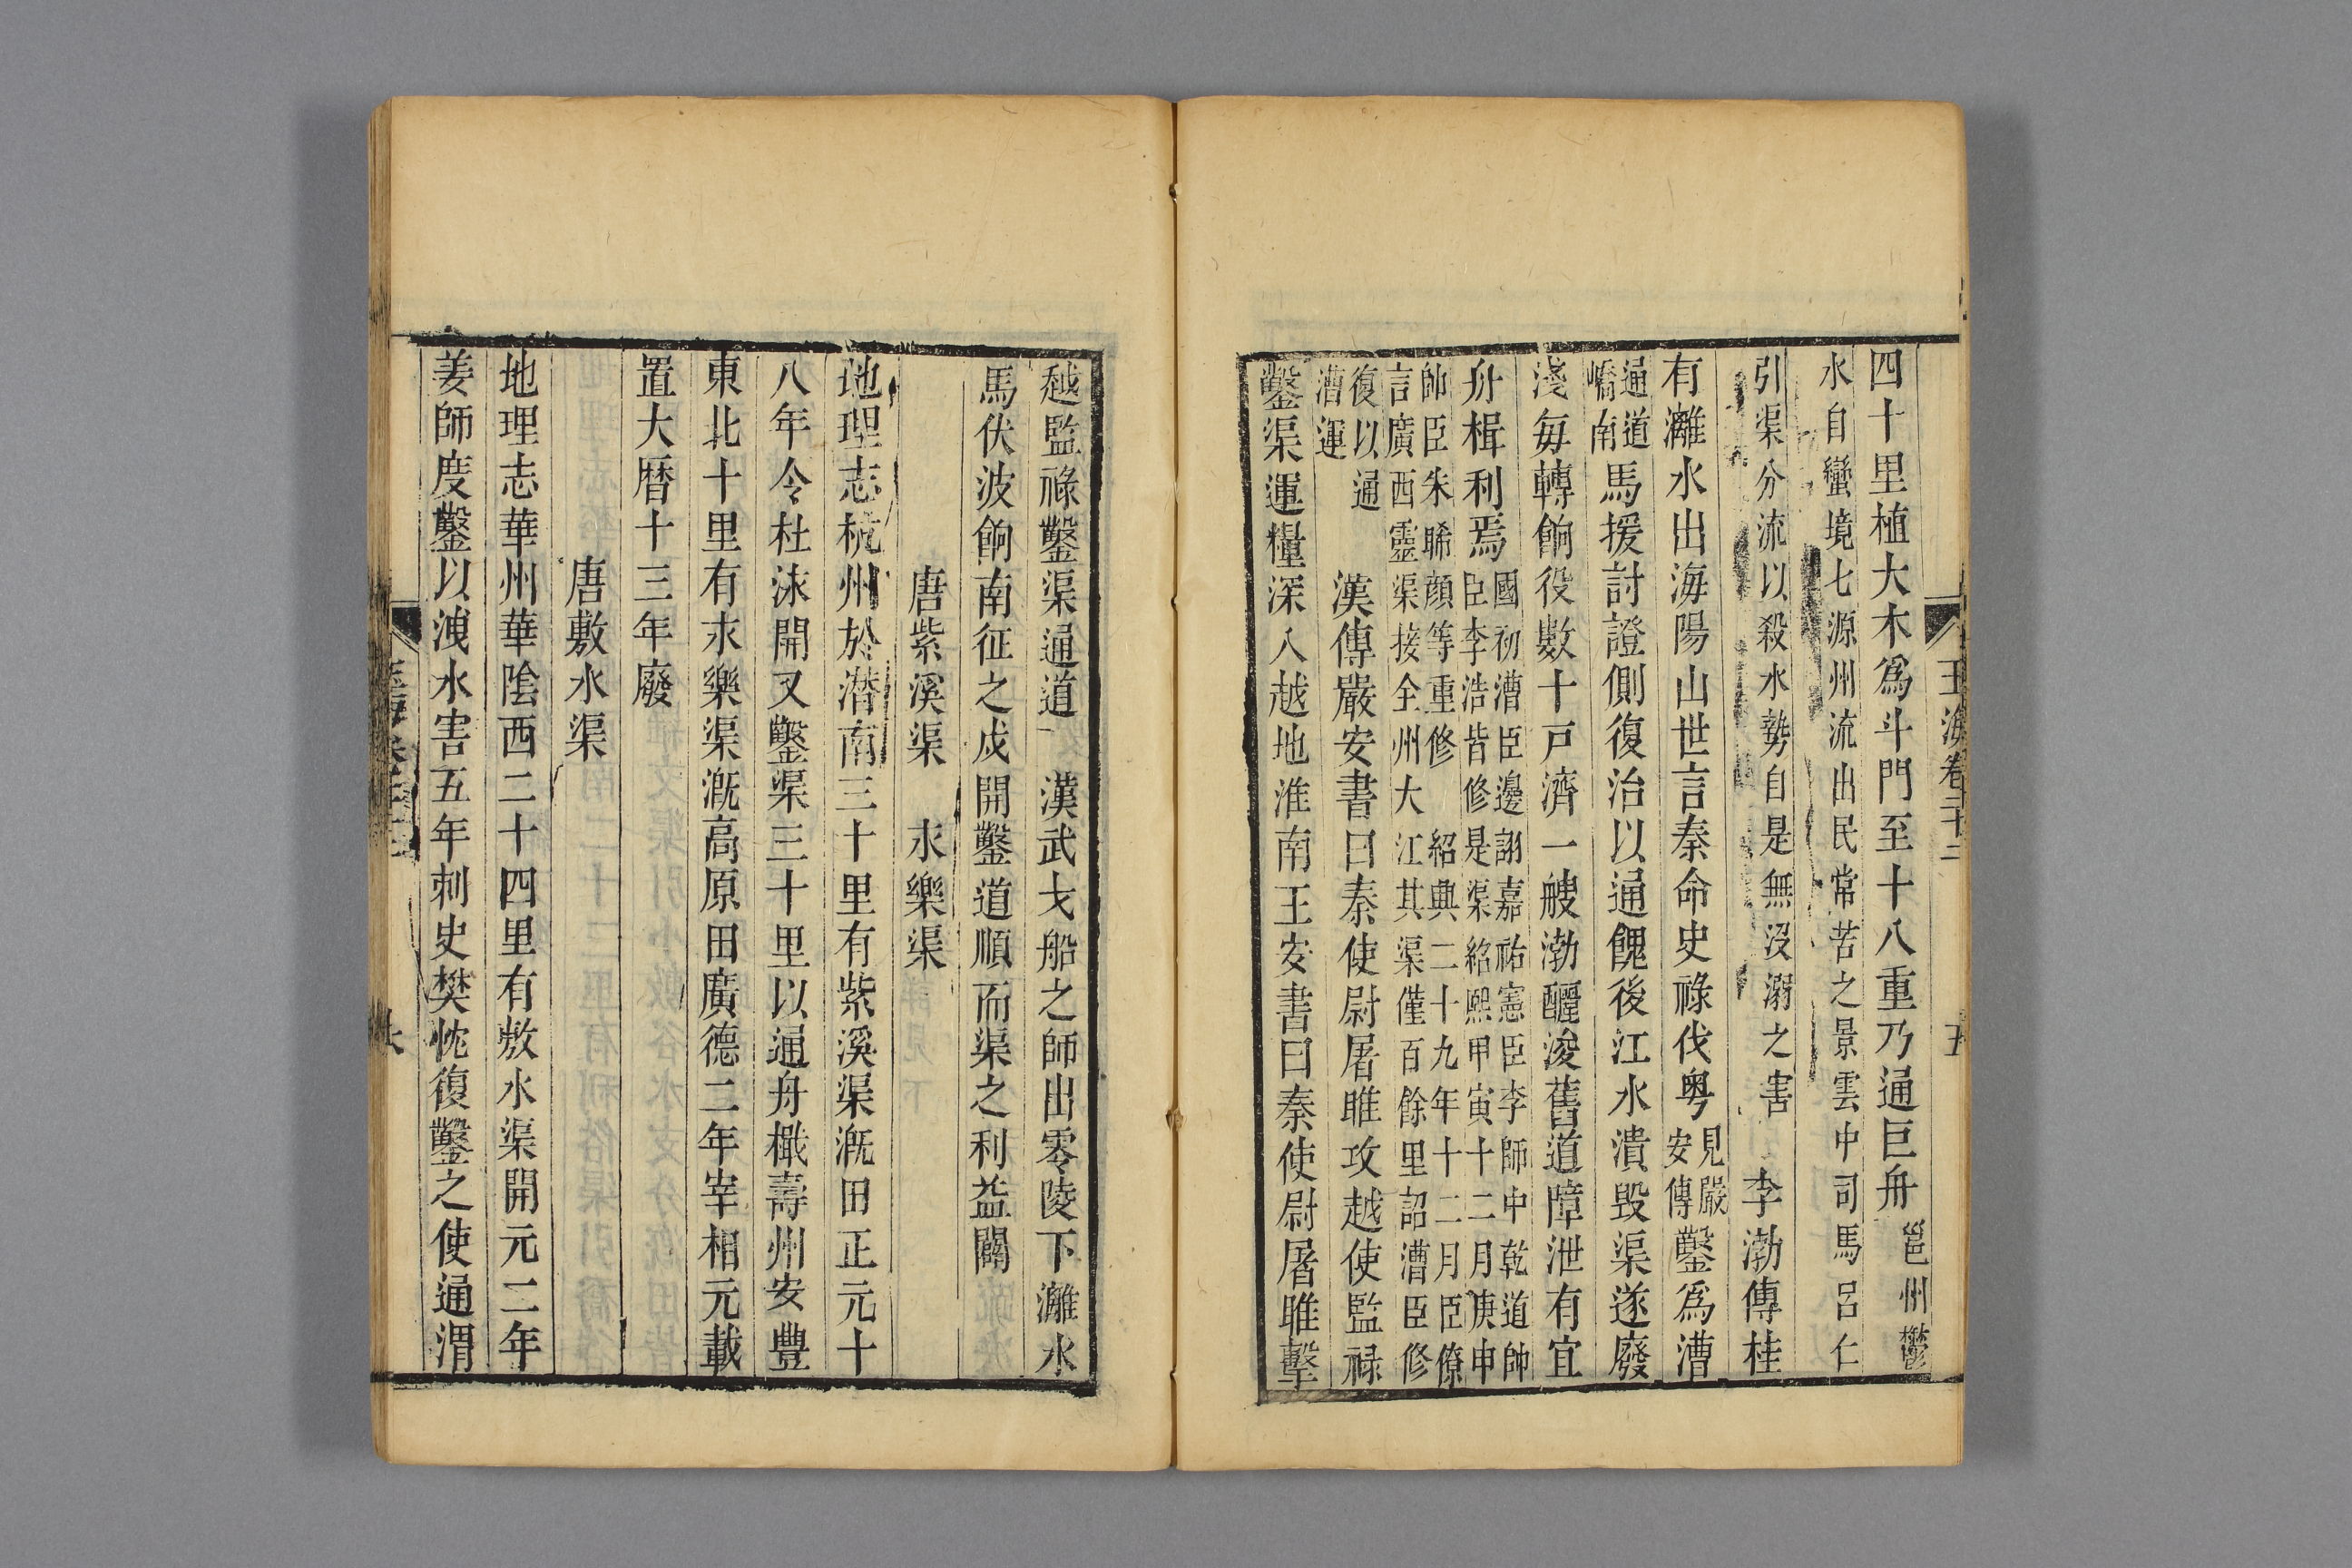 玉海卷二十二
四十里植大木爲斗門至十八重乃通巨舟邕州鬱
水自蠻境七源州流出民常苦之景雲中司馬呂仁
引渠分流以殺水勢自是無沒溺之害 李渤傳桂
有灕水出海陽山世言秦命史祿伐粵見嚴安傳鑿爲漕
通道嶠南馬援討證側復治以通餽後江水潰毀渠遂廢
淺每轉餉役數十戸濟一艘渤釃浚舊道障泄有宜
舟楫利焉國初漕臣邊詡嘉祐憲臣李師中乾道帥
臣李浩皆修是渠紹熙甲寅十二月庚申
帥臣朱晞顔等重修 紹興二十九年十二月臣僚
言廣西靈渠接全州大江其渠僅百餘里詔漕臣修
復以通漕運 漢傳嚴安書曰秦使尉屠睢攻越使監祿
鑿渠運糧深入越地淮南王安書曰秦使尉屠睢擊
越監祿鑿渠通道 漢武戈船之師出零陵下灕水
馬伏波餉南征之戍開鑿道順而渠之利益闢
唐紫溪渠 求樂渠
地理志杭州於潛南三十里有紫溪渠漑田正元十
八年令杜泳開又鑿渠三十里以通舟檝壽州安豐
東北十里有求樂渠漑高原田廣德二年宰相元載
置大曆十三年廢
唐敷水渠
地理志華州華陰西二十四里有敷水渠開元二年
姜師度鑿以洩水害五年刺史樊忱復鑿之使通渭